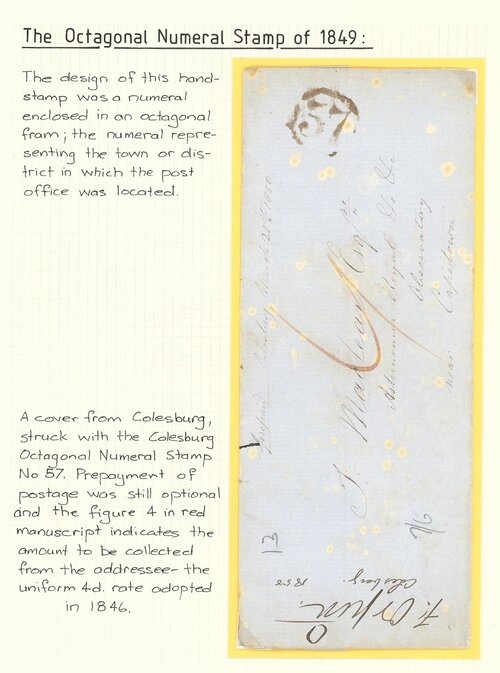 The Octagonal Numeral Stamp of 1849:
The design of this hand-
stamp was a numeral
enclosed in an octagonal
fram; the numeral repre-
senting the town or dis-
trict in which the post
office was located.
A cover from Colesburg,
struck with the Colesburg
Octagonal Numeral Stamp
No 57. Prepayment of
postage was still optional
and the figure 4 in red
manuscript indicates the
amount to be collected
from the addressee- the
uniform 4d. rate adopted
in 1846.
57
T. Maclear Esqre
Astronomer Royal &c &c
Observatory
near Capetown
4
13
Colesberg
1850